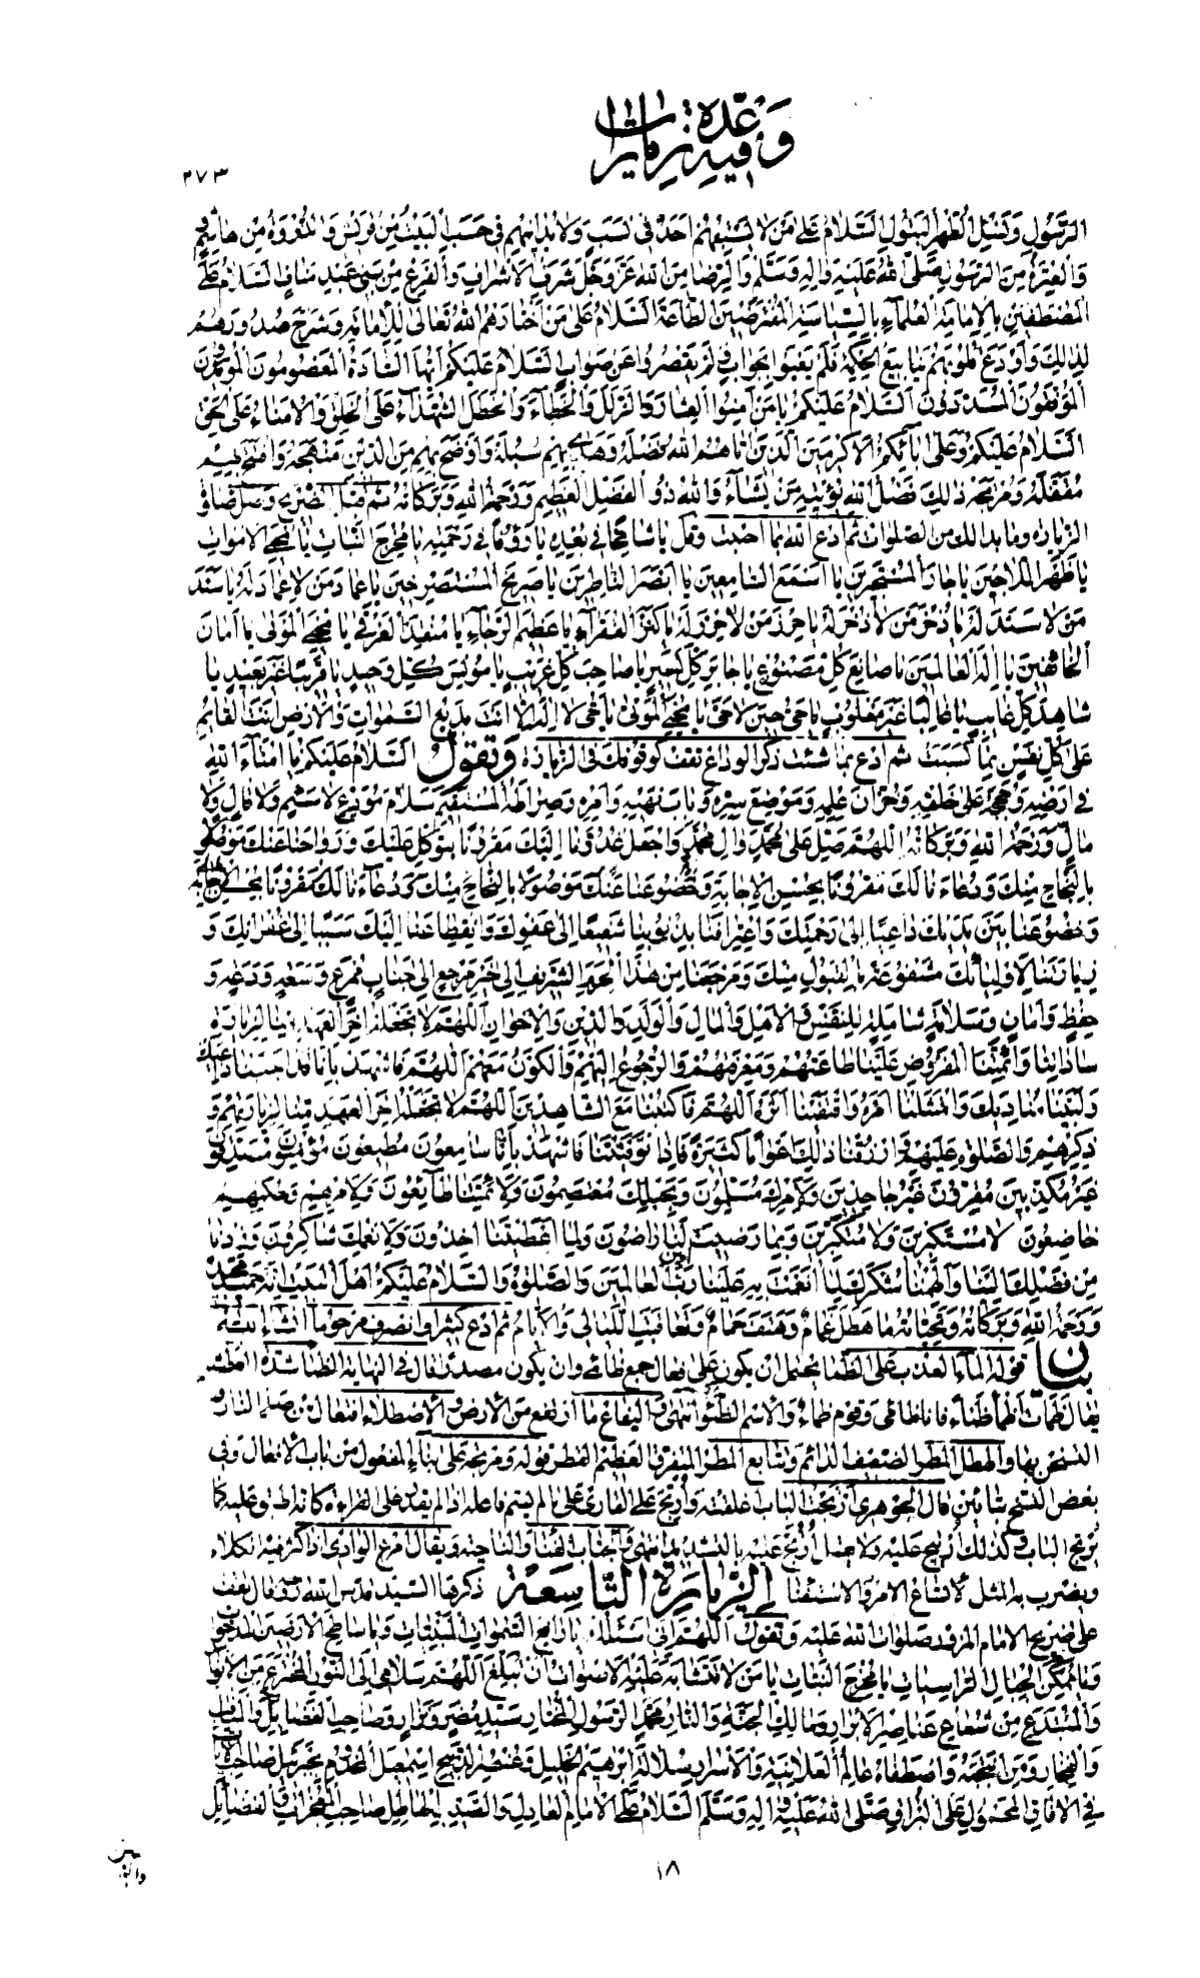 وفيه عدة زيارات
٢٧٣
الرَّسُولِ وَنَسْلِ الطُّهْرِ الْبَتُولِ السَّلَامُ عَلَى مَنْ لَا يُشْبِهُهُمْ أَحَدٌ فِي نَسَبٍ وَلَا يُدَانِيهِمْ فِي حَسَبٍ الْبَيْتُ مِنْ قُرَيْشٍ وَالذُّرْوَةُ مِنْ هَاشِمٍ
وَالْعِتْرَةُ مِنَ الرَّسُولِ صَلَّى اللهُ عَلَيْهِ وَآلِهِ وَسَلَّمَ وَالرِّضَا مِنَ اللهِ عَزَّ وَجَلَّ شَرَفُ الْأَشْرَافِ وَالْفَرْعُ مِنْ بَنِي عَبْدِ مَنَافٍ السَّلَامُ عَلَى
الْمُضْطَلِعِينَ بِالْإِمَامَةِ الْعُلَمَاءِ بِالسِّيَاسَةِ الْمُفْتَرَضِينَ الطَّاعَةَ السَّلَامُ عَلَى مَنِ اخْتَارَهُمُ اللهُ تَعَالَى لِلْإِمَامَةِ وَشَرَحَ صُدُورَهُمْ
لِذَلِكَ وَأَوْدَعَ قُلُوبَهُمْ يَنَابِيعَ الْحِكْمَةِ فَلَمْ يَعْيَوْا بِجَوَابٍ وَلَمْ يَقْصُرُوا عَنْ صَوَابٍ السَّلَامُ عَلَيْكُمْ أَيُّهَا السَّادَةُ الْمَعْصُومُونَ الْمُؤَيَّدُونَ
الْمُوَفَّقُونَ الْمُسَدَّدُونَ السَّلَامُ عَلَيْكُمْ يَا مَنْ أَمِنُوا الْعِثَارَ وَالزَّلَلَ وَالْخَطَاءَ وَالْخَطَلَ الشُّهَدَاءُ عَلَى الْخَلْقِ وَالْأُمَنَاءُ عَلَى الْحَقِّ
السَّلَامُ عَلَيْكُمْ وَعَلَى آبَائِكُمُ الْأَكْرَمِينَ الَّذِينَ آتَاهُمُ اللهُ فَضْلَهُ وَهَدَى بِهِمْ سُبُلَهُ وَأَوْضَحَ بِهِمْ مِنَ الدِّينِ مَنْهَجَهُ وَافْتَتَحَ بِهِمْ
مُقْفَلَهُ وَمُرْتَجَهُ ذَلِكَ فَضْلُ اللهِ يُؤْتِيهِ مَنْ يَشَاءُ وَاللهُ ذُو الْفَضْلِ الْعَظِيمِ وَرَحْمَةُ اللهِ وَبَرَكَاتُهُ ثم قبّل الضريح وصلّ صلوة
الزيارة وما بدا لك من الصلوات ثم ادع الله بما أحببت وقل يَا شَامِخًا فِي بُعْدِهِ يَا رَؤُوفًا فِي رَحْمَتِهِ يَا مُخْرِجَ النَّبَاتِ يَا مُحْيِيَ الْأَمْوَاتِ
يَا ظَهْرَ اللَّاجِينَ يَا جَارَ الْمُسْتَجِيرِينَ يَا أَسْمَعَ السَّامِعِينَ يَا أَبْصَرَ النَّاظِرِينَ يَا صَرِيخَ الْمُسْتَصْرِخِينَ يَا عِمَادَ مَنْ لَا عِمَادَ لَهُ يَا سَنَدَ
مَنْ لَا سَنَدَ لَهُ يَا ذُخْرَ مَنْ لَا ذُخْرَ لَهُ يَا حِرْزَ مَنْ لَا حِرْزَ لَهُ يَا كَنْزَ الْفُقَرَاءِ يَا عَظِيمَ الرَّجَاءِ يَا مُنْقِذَ الْغَرْقَى يَا مُحْيِيَ الْمَوْتَى يَا أَمَانَ
الْخَائِفِينَ يَا إِلَهَ الْعَالَمِينَ يَا صَانِعَ كُلِّ مَصْنُوعٍ يَا جَابِرَ كُلِّ كَسِيرٍ يَا صَاحِبَ كُلِّ غَرِيبٍ يَا مُونِسَ كُلِّ وَحِيدٍ يَا قَرِيبًا غَيْرَ بَعِيدٍ يَا
شَاهِدَ كُلِّ غَائِبٍ يَا غَالِبًا غَيْرَ مَغْلُوبٍ يَا حَيُّ حِينَ لَا حَيَّ يَا مُحْيِيَ الْمَوْتَى يَا حَيُّ لَا إِلَهَ إِلَّا أَنْتَ بَدِيعُ السَّمَوَاتِ وَالْأَرْضِ أَنْتَ الْقَائِمُ
عَلَى كُلِّ نَفْسٍ بِمَا كَسَبَتْ ثم ادع بما شئت ذكر الوداع تقف كوقوفك في الزيارة وتقول السَّلَامُ عَلَيْكُمْ يَا أُمَنَاءَ اللهِ
فِي أَرْضِهِ وَحُجَجَهُ عَلَى خَلْقِهِ وَخُزَّانَ عِلْمِهِ وَمَوْضِعَ سِرِّهِ وَبَابَ نَهْيِهِ وَأَمْرِهِ وَصِرَاطَهُ الْمُسْتَقِيمَ سَلَامَ مُوَدِّعٍ لَا سَئِمٍ وَلَا قَالٍ وَلَا
مَالٍّ وَرَحْمَةُ اللهِ وَبَرَكَاتُهُ اللَّهُمَّ صَلِّ عَلَى مُحَمَّدٍ وَآلِ مُحَمَّدٍ وَاجْعَلْ غُدُوَّنَا إِلَيْكَ مَقْرُونًا بِتَوَكُّلٍ عَلَيْكَ وَرَوَاحَنَا عَنْكَ مَوْصُولًا
بِالنَّجَاحِ مِنْكَ وَدُعَاءَنَا لَكَ مَقْرُونًا بِحُسْنِ الْإِجَابَةِ
وَخُضُوعَنَا بَيْنَ يَدَيْكَ دَاعِيًا إِلَى رَحْمَتِكَ وَاعْتِرَافَنَا بِذُنُوبِنَا شَفِيعًا إِلَى عَفْوِكَ وَانْقِطَاعَنَا إِلَيْكَ سَبَبًا إِلَى غُفْرَانِكَ وَ
زِيَارَتَنَا لِأَوْلِيَائِكَ مَشْفُوعَةً بِالْقَبُولِ مِنْكَ وَمَرْجِعَنَا مِنْ هَذَا الْحَرَمِ الشَّرِيفِ إِلَى خَيْرِ مَرْجِعٍ إِلَى جَنَابٍ مُمْرِعٍ وَسَعَةٍ وَدَعَةٍ وَ
حِفْظٍ وَأَمَانٍ وَسَلَامَةٍ شَامِلَةٍ لِلنَّفْسِ وَالْأَهْلِ وَالْمَالِ وَالْوَلَدِ وَالدِّينِ وَالْإِخْوَانِ اللَّهُمَّ لَا تَجْعَلْهُ آخِرَ الْعَهْدِ مِنَّا لِزِيَارَةِ
سَادَاتِنَا وَأَئِمَّتِنَا الْمَفْرُوضِ عَلَيْنَا طَاعَتُهُمْ وَمَعْرِفَتُهُمْ وَالرُّجُوعُ إِلَيْهِمْ وَالْكَوْنُ مَعَهُمْ اللَّهُمَّ فَاشْهَدْ بِأَنَّا
وَلَبَّيْنَا مُنَادِيَكَ وَامْتَثَلْنَا أَمْرَهُ وَاقْتَفَيْنَا أَثَرَهُ اللَّهُمَّ فَاكْتُبْنَا مَعَ الشَّاهِدِينَ اللَّهُمَّ لَا تَجْعَلْهُ آخِرَ الْعَهْدِ مِنَّا لِزِيَارَتِهِمْ وَ
ذِكْرِهِمْ وَالصَّلَوةِ عَلَيْهِمْ وَارْزُقْنَا ذَلِكَ أَعْوَامًا كَثِيرَةً فَإِذَا تَوَفَّيْتَنَا فَاشْهَدْ بِأَنَّا سَامِعُونَ مُطِيعُونَ مُؤْمِنُونَ مُصَدِّقُونَ
غَيْرُ مُكَذِّبِينَ مُقِرُّونَ غَيْرُ جَاحِدِينَ وَلِأَمْرِكَ مُسَلِّمُونَ وَبِحَبْلِكَ مُعْتَصِمُونَ وَلِأَئِمَّتِنَا طَائِعُونَ وَلِأَمْرِهِمْ وَحُكْمِهِمْ
خَاضِعُونَ لَا مُسْتَكْبِرِينَ وَلَا مُتَكَبِّرِينَ وَبِمَا رَضِيتَ لَنَا رَاضُونَ وَلِمَا أَعْطَيْتَنَا آخِذُونَ وَلِأَنْعُمِكَ شَاكِرُونَ فَزِدْنَا
مِنْ فَضْلِكَ وَأَلْهِمْنَا شُكْرَكَ لِمَا أَنْعَمْتَ بِهِ عَلَيْنَا رَبَّ الْعَالَمِينَ وَالصَّلَوةُ وَالسَّلَامُ عَلَيْكُمْ أَهْلَ الْبَيْتِ إِنَّهُ حَمِيدٌ مَجِيدٌ
وَرَحْمَةُ اللهِ وَبَرَكَاتُهُ وَتَحِيَّاتُهُ مَا هَطَلَ غَمَامٌ وَهَتَفَ حَمَامٌ وَتَعَاقَبَتِ اللَّيَالِي وَالْأَيَّامُ ثم ادع كثيرا وانصرف مرحوما انشاء الله
بيان قوله الماء العذب على الظما يحتمل ان يكون على فعال جمع ظامئ وان يكون مصدرا قال في النهاية الظمأ شدة العطش
يقال ظمئت أظمأ ظمأ فانا ظامئ وقوم ظماء والاسم الظمء انتهى واليفاع ما ارتفع من الأرض والاصطلاء افتعال من صلى النار و
التسخن بها والهطل المطر الضعيف الدائم وتتابع المطر المتفرق العظيم القطر قوله ومرتجه على بناء المفعول من باب الافعال وفي
بعض النسخ بتائين قال الجوهري أرتجت الباب أغلقته وأرتج على القارئ على ما لم يسم فاعله اذا لم يقدر على القراءة كانه اطبق عليه كما
يرتج الباب وكذلك ارتتج عليه ولا تقل أرتجّ عليه بالتشديد انتهى والجناب الفناء والناحية ويقال مرع الوادي اذا كثر فيه الكلاء
ويضرب به المثل لاتساع الامر والاستغناء الزيارة التاسعة ذكرها السيد قدس الله روحه قال تقف
على ضريح الامام المزور صلوات الله عليه وتقول اللَّهُمَّ إِنِّي أَسْئَلُكَ يَا رَافِعَ السَّمَوَاتِ الْمَبْنِيَّاتِ وَيَا سَاطِحَ الْأَرَضِينَ الْمَدْحُوَّاتِ
وَيَا مُمَكِّنَ الْجِبَالِ الرَّاسِيَاتِ يَا مُخْرِجَ النَّبَاتِ يَا مَنْ لَا تَتَشَابَهُ عَلَيْهِ الْأَصْوَاتُ أَنْ تُبَلِّغَ اللَّهُمَّ سَلَامِي إِلَى النُّورِ الْمُخْتَرَعِ مِنَ الْأَنْوَارِ
وَالْمُبْتَدَعِ مِنْ شُعَاعِ عَنَاصِرِ الْأَبْرَارِ وَمَالِكِ الْجَنَّةِ وَالنَّارِ مُحَمَّدٍ الرَّسُولِ الْمُخْتَارِ سَيِّدِ مُضَرَ وَنِزَارٍ وَصَاحِبِ الْفَضَائِلِ وَالْمَنَاقِبِ
وَالْفَخَارِ وَمَنِ انْتَجَبَهُ وَاصْطَفَاهُ عَالِمُ الْعَلَانِيَةِ وَالْأَسْرَارِ سُلَالَةِ إِبْرَهِيمَ الْخَلِيلِ وَعُنْصُرِ الذَّبِيحِ إِسْمَعِيلَ الْمَخْدُومِ بِجَبْرَئِيلَ صَاحِبِ الْآيَاتِ
فِي الْآفَاقِ الْمَحْمُولِ عَلَى الْبُرَاقِ صَلَّى اللهُ عَلَيْهِ وَآلِهِ وَسَلَّمَ السَّلَامُ عَلَى الْإِمَامِ الْعَادِلِ وَالصَّيِّبِ الْهَاطِلِ صَاحِبِ الْمُعْجِزَاتِ وَالْفَضَائِلِ
١٨